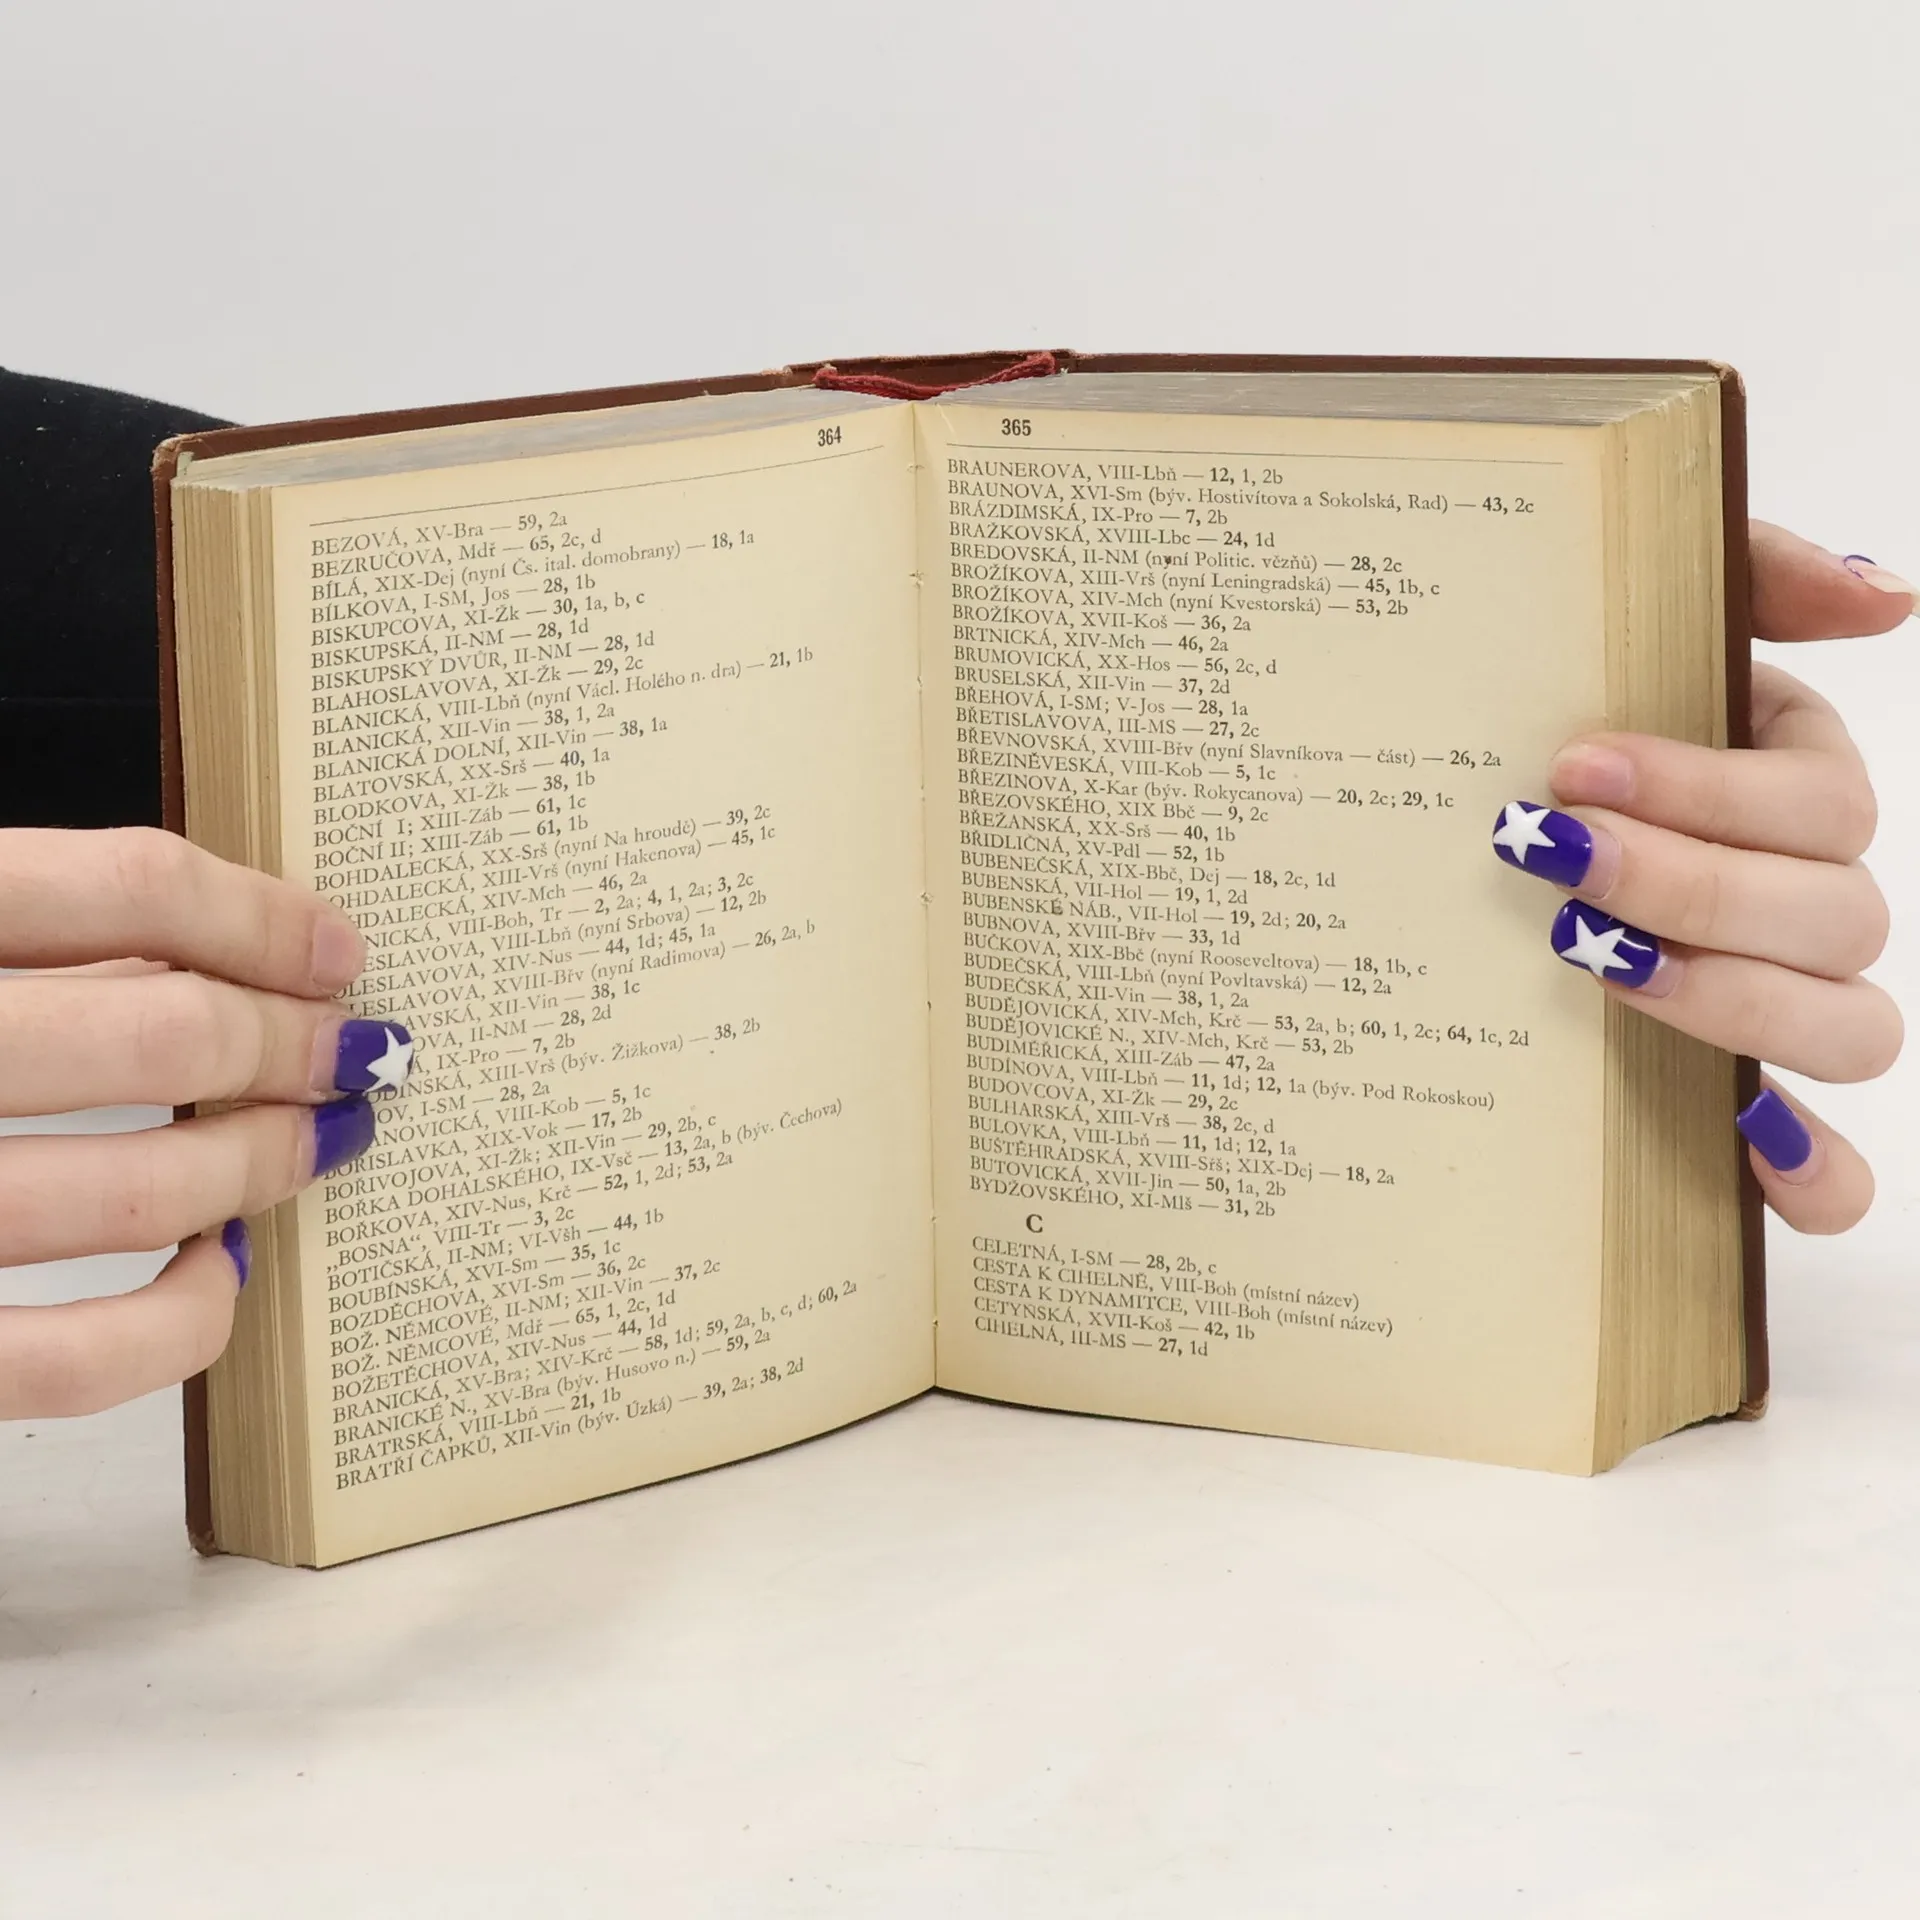 364
BEZOVÁ, XV-Bra — 59, 2a
BEZRUČOVA, Mdř — 65, 2c, d
BÍLÁ, XIX-Dej (nyní Čs. ital. domobrany) — 18, 1a
BÍLKOVA, I-SM, Jos — 28, 1b
BISKUPCOVA, XI-Žk — 30, 1a, b, c
BISKUPSKÁ, II-NM — 28, 1d
BISKUPSKÝ DVŮR, II-NM — 28, 1d
BLAHOSLAVOVA, XI-Žk — 29, 2c
BLANICKÁ, VIII-Lbň (nyní Václ. Holého n. dra) — 21, 1b
BLANICKÁ, XII-Vin — 38, 1, 2a
BLANICKÁ DOLNÍ, XII-Vin — 38, 1a
BLATOVSKÁ, XX-Srš — 40, 1a
BLODKOVA, XI-Žk — 38, 1b
BOČNÍ I; XIII-Záb — 61, 1c
BOČNÍ II; XIII-Záb — 61, 1b
BOHDALECKÁ, XX-Srš (nyní Na hroudě) — 39, 2c
OHDALECKÁ, XIII-Vrš (nyní Hakenova) — 45, 1c
HDALECKÁ, XIV-Mch — 46, 2a
NICKÁ, VIII-Boh, Tr — 2, 2a; 4, 1, 2a; 3, 2c
ESLAVOVA, VIII-Lbň (nyní Srbova) — 12, 2b
OLESLAVOVA, XIV-Nus — 44, 1d; 45, 1a
LESLAVOVA, XVIII-Břv (nyní Radimova) — 26, 2a, b
AVSKÁ, XII-Vin — 38, 1c
OVA, II-NM — 28, 2d
Á, IX-Pro — 7, 2b
ODINSKÁ, XIII-Vrš (býv. Žižkova) — 38, 2b
OV, I-SM — 28, 2a
ANOVICKÁ, VIII-Kob — 5, 1c
BOŘISLAVKA, XIX-Vok — 17, 2b
BOŘIVOJOVA, XI-Žk; XII-Vin — 29, 2b, c
BOŘKA DOHALSKÉHO, IX-Vsč — 13, 2a, b (býv. Čechova)
BOŘKOVA, XIV-Nus, Krč — 52, 1, 2d; 53, 2a
„BOSNA“, VIII-Tr — 3, 2c
BOTIČSKÁ, II-NM; VI-Všh — 44, 1b
BOUBÍNSKÁ, XVI-Sm — 35, 1c
BOZDĚCHOVA, XVI-Sm — 36, 2c
BOŽ. NĚMCOVÉ, II-NM; XII-Vin — 37, 2c
BOŽ. NĚMCOVÉ, Mdř — 65, 1, 2c, 1d
BOŽETĚCHOVA, XIV-Nus — 44, 1d
BRANICKÁ, XV-Bra; XIV-Krč — 58, 1d; 59, 2a, b, c, d; 60, 2a
BRANICKÉ N., XV-Bra (býv. Husovo n.) — 59, 2a
BRATRSKÁ, VIII-Lbň — 21, 1b
BRATŘÍ ČAPKŮ, XII-Vin (býv. Úzká) — 39, 2a; 38, 2d
365
BRAUNEROVA, VIII-Lbň — 12, 1, 2b
BRAUNOVA, XVI-Sm (býv. Hostivítova a Sokolská, Rad) — 43, 2c
BRÁZDIMSKÁ, IX-Pro — 7, 2b
BRAŽKOVSKÁ, XVIII-Lbc — 24, 1d
BREDOVSKÁ, II-NM (nyní Politic. vězňů) — 28, 2c
BROŽÍKOVA, XIII-Vrš (nyní Leningradská) — 45, 1b, c
BROŽÍKOVA, XIV-Mch (nyní Kvestorská) — 53, 2b
BROŽÍKOVA, XVII-Koš — 36, 2a
BRTNICKÁ, XIV-Mch — 46, 2a
BRUMOVICKÁ, XX-Hos — 56, 2c, d
BRUSELSKÁ, XII-Vin — 37, 2d
BŘEHOVÁ, I-SM; V-Jos — 28, 1a
BŘETISLAVOVA, III-MS — 27, 2c
BŘEVNOVSKÁ, XVIII-Břv (nyní Slavníkova — část) — 26, 2a
BŘEZINĚVESKÁ, VIII-Kob — 5, 1c
BŘEZINOVA, X-Kar (býv. Rokycanova) — 20, 2c; 29, 1c
BŘEZOVSKÉHO, XIX Bbč — 9, 2c
BŘEŽANSKÁ, XX-Srš — 40, 1b
BŘIDLIČNÁ, XV-Pdl — 52, 1b
BUBENEČSKÁ, XIX-Bbč, Dej — 18, 2c, 1d
BUBENSKÁ, VII-Hol — 19, 1, 2d
BUBENSKÉ NÁB., VII-Hol — 19, 2d; 20, 2a
BUBNOVA, XVIII-Břv — 33, 1d
BUČKOVA, XIX-Bbč (nyní Rooseveltova) — 18, 1b, c
BUDEČSKÁ, VIII-Lbň (nyní Povltavská) — 12, 2a
BUDEČSKÁ, XII-Vin — 38, 1, 2a
BUDĚJOVICKÁ, XIV-Mch, Krč — 53, 2a, b; 60, 1, 2c; 64, 1c, 2d
BUDĚJOVICKÉ N., XIV-Mch, Krč — 53, 2b
BUDIMĚŘICKÁ, XIII-Záb — 47, 2a
BUDÍNOVA, VIII-Lbň — 11, 1d; 12, 1a (býv. Pod Rokoskou)
BUDOVCOVA, XI-Žk — 29, 2c
BULHARSKÁ, XIII-Vrš — 38, 2c, d
BULOVKA, VIII-Lbň — 11, 1d; 12, 1a
BUŠTĚHRADSKÁ, XVIII-Sřš; XIX-Dej — 18, 2a
BUTOVICKÁ, XVII-Jin — 50, 1a, 2b
BYDŽOVSKÉHO, XI-Mlš — 31, 2b
C
CELETNÁ, I-SM — 28, 2b, c
CESTA K CIHELNĚ, VIII-Boh (místní název)
CESTA K DYNAMITCE, VIII-Boh (místní název)
CETYŇSKÁ, XVII-Koš — 42, 1b
CIHELNÁ, III-MS — 27, 1d